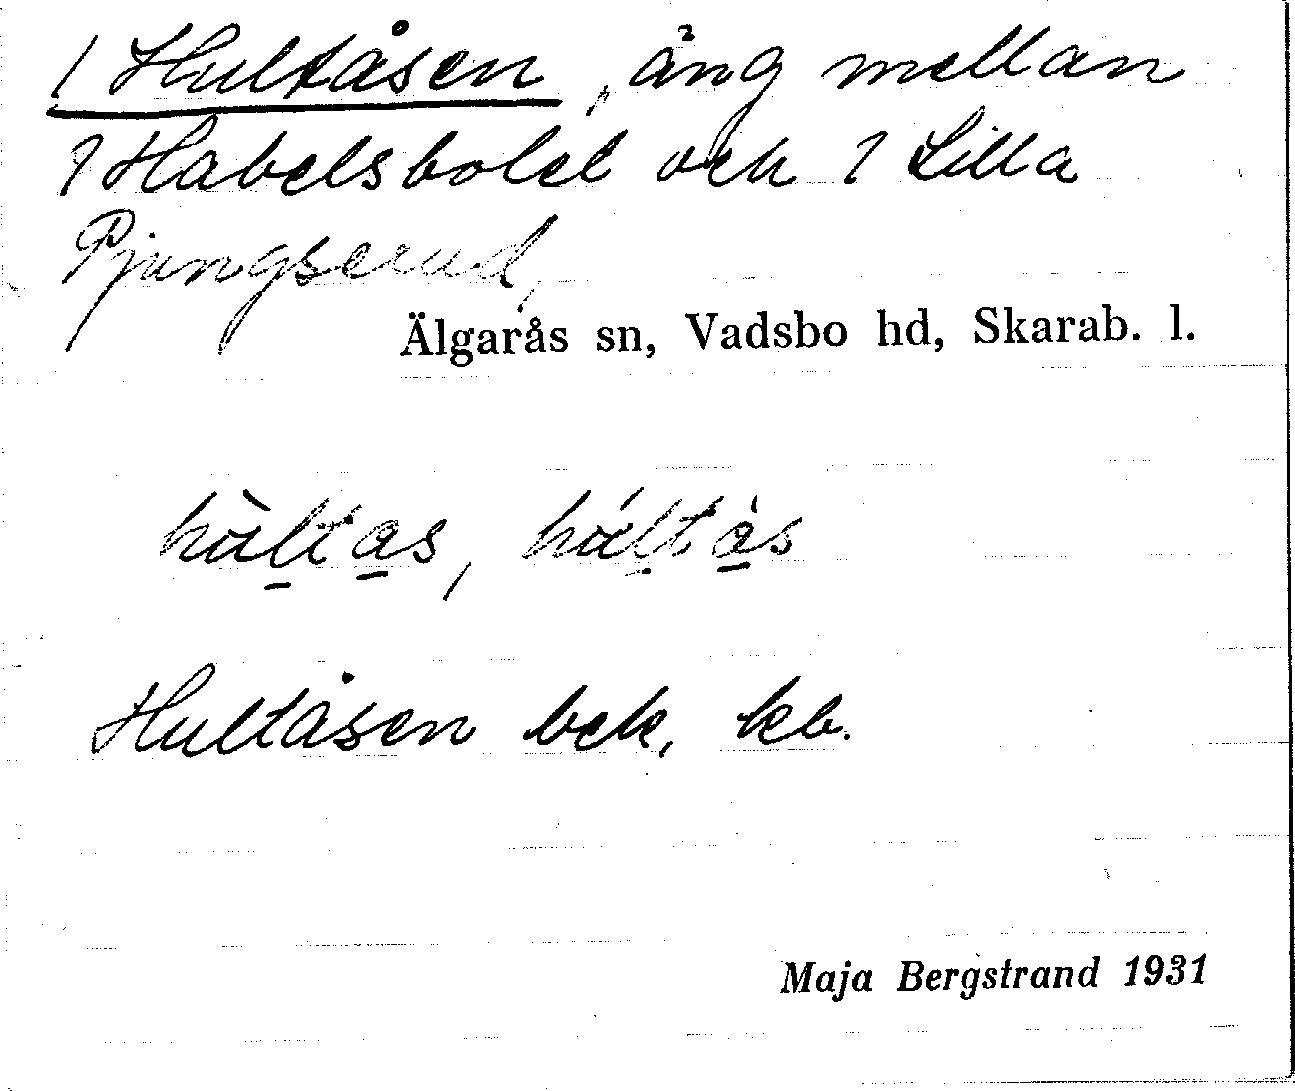 / Hultåsen, äng mellan
1 Habelsbolet och 1 Lilla
Pjungserud,
Älgarås sn, Vadsbo hd, Skarab. l.
Hultåsen bek. kb.
Maja Bergstrand 1931